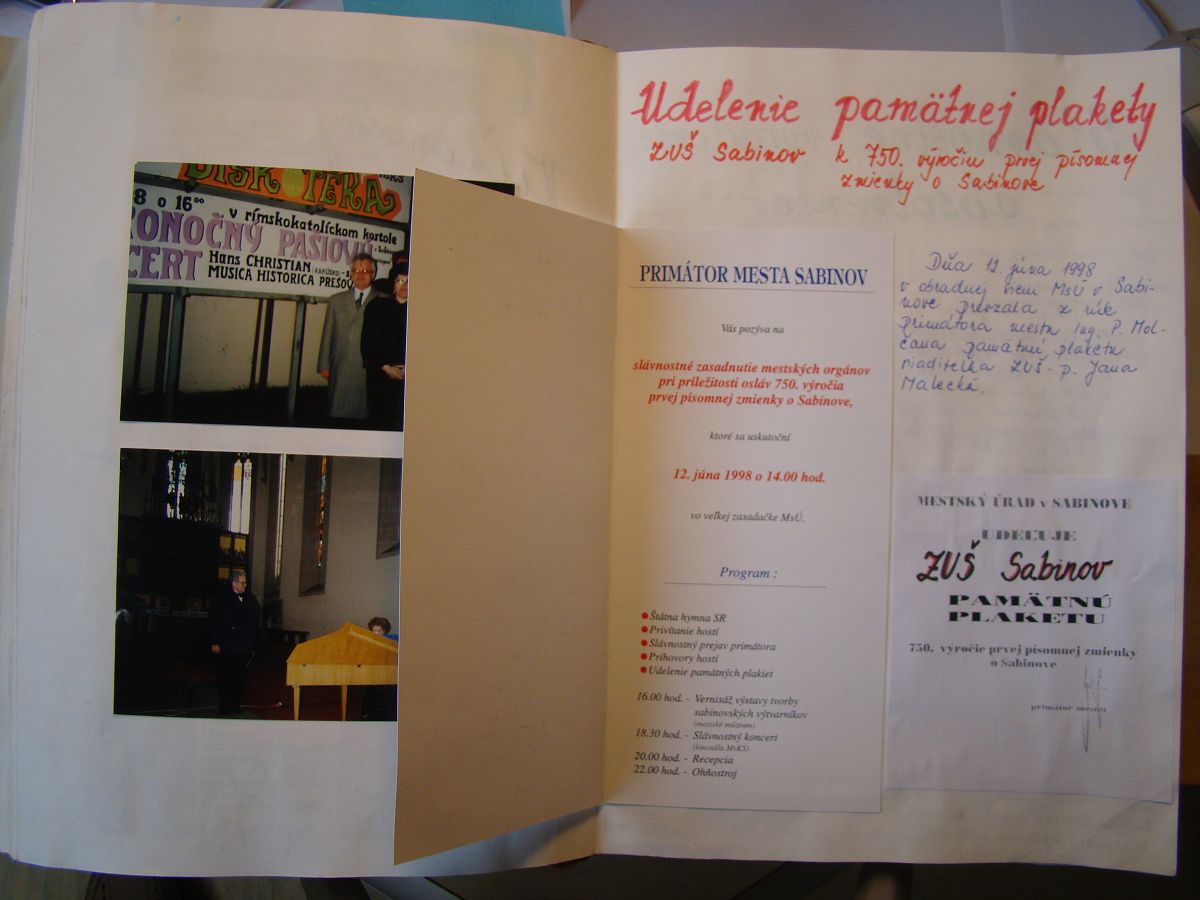 DISKOTEKA
8 o 16⁰⁰
v rímskokatolíckom kostole
ONOČNÝ PAŠIOVÝ
CERT
Hans CHRISTIAN
MUSICA HISTORICA PREŠOV
Udelenie pamätnej plakety
ZUŠ Sabinov k 750. výročiu prvej písomnej
zmienky o Sabinove
PRIMÁTOR MESTA SABINOV
Vás pozýva na
slávnostné zasadnutie mestských orgánov
pri príležitosti osláv 750. výročia
prvej písomnej zmienky o Sabinove,
ktoré sa uskutoční
12. júna 1998 o 14.00 hod.
vo veľkej zasadačke MsÚ.
Program :
Štátna hymna SR
Privítanie hostí
Slávnostný prejav primátora
Príhovory hostí
Udelenie pamätných plakiet
16.00 hod. - Vernisáž výstavy tvorby
sabinovských výtvarníkov
(mestské múzeum)
18.30 hod. - Slávnostný koncert
(kinosála MsKS)
20.00 hod. - Recepcia
22.00 hod. - Ohňostroj
Dňa 12. júna 1998
v obradnej sieni MsÚ v Sabi-
nove prevzala z rúk
primátora mesta Ing. P. Mol-
čana pamätnú plaketu
riaditeľka ZUŠ - p. Jana
Malecká.
MESTSKÝ ÚRAD v SABINOVE
UDEĽUJE
ZUŠ Sabinov
PAMÄTNÚ
PLAKETU
750. výročie prvej písomnej zmienky
o Sabinove
primátor mesta